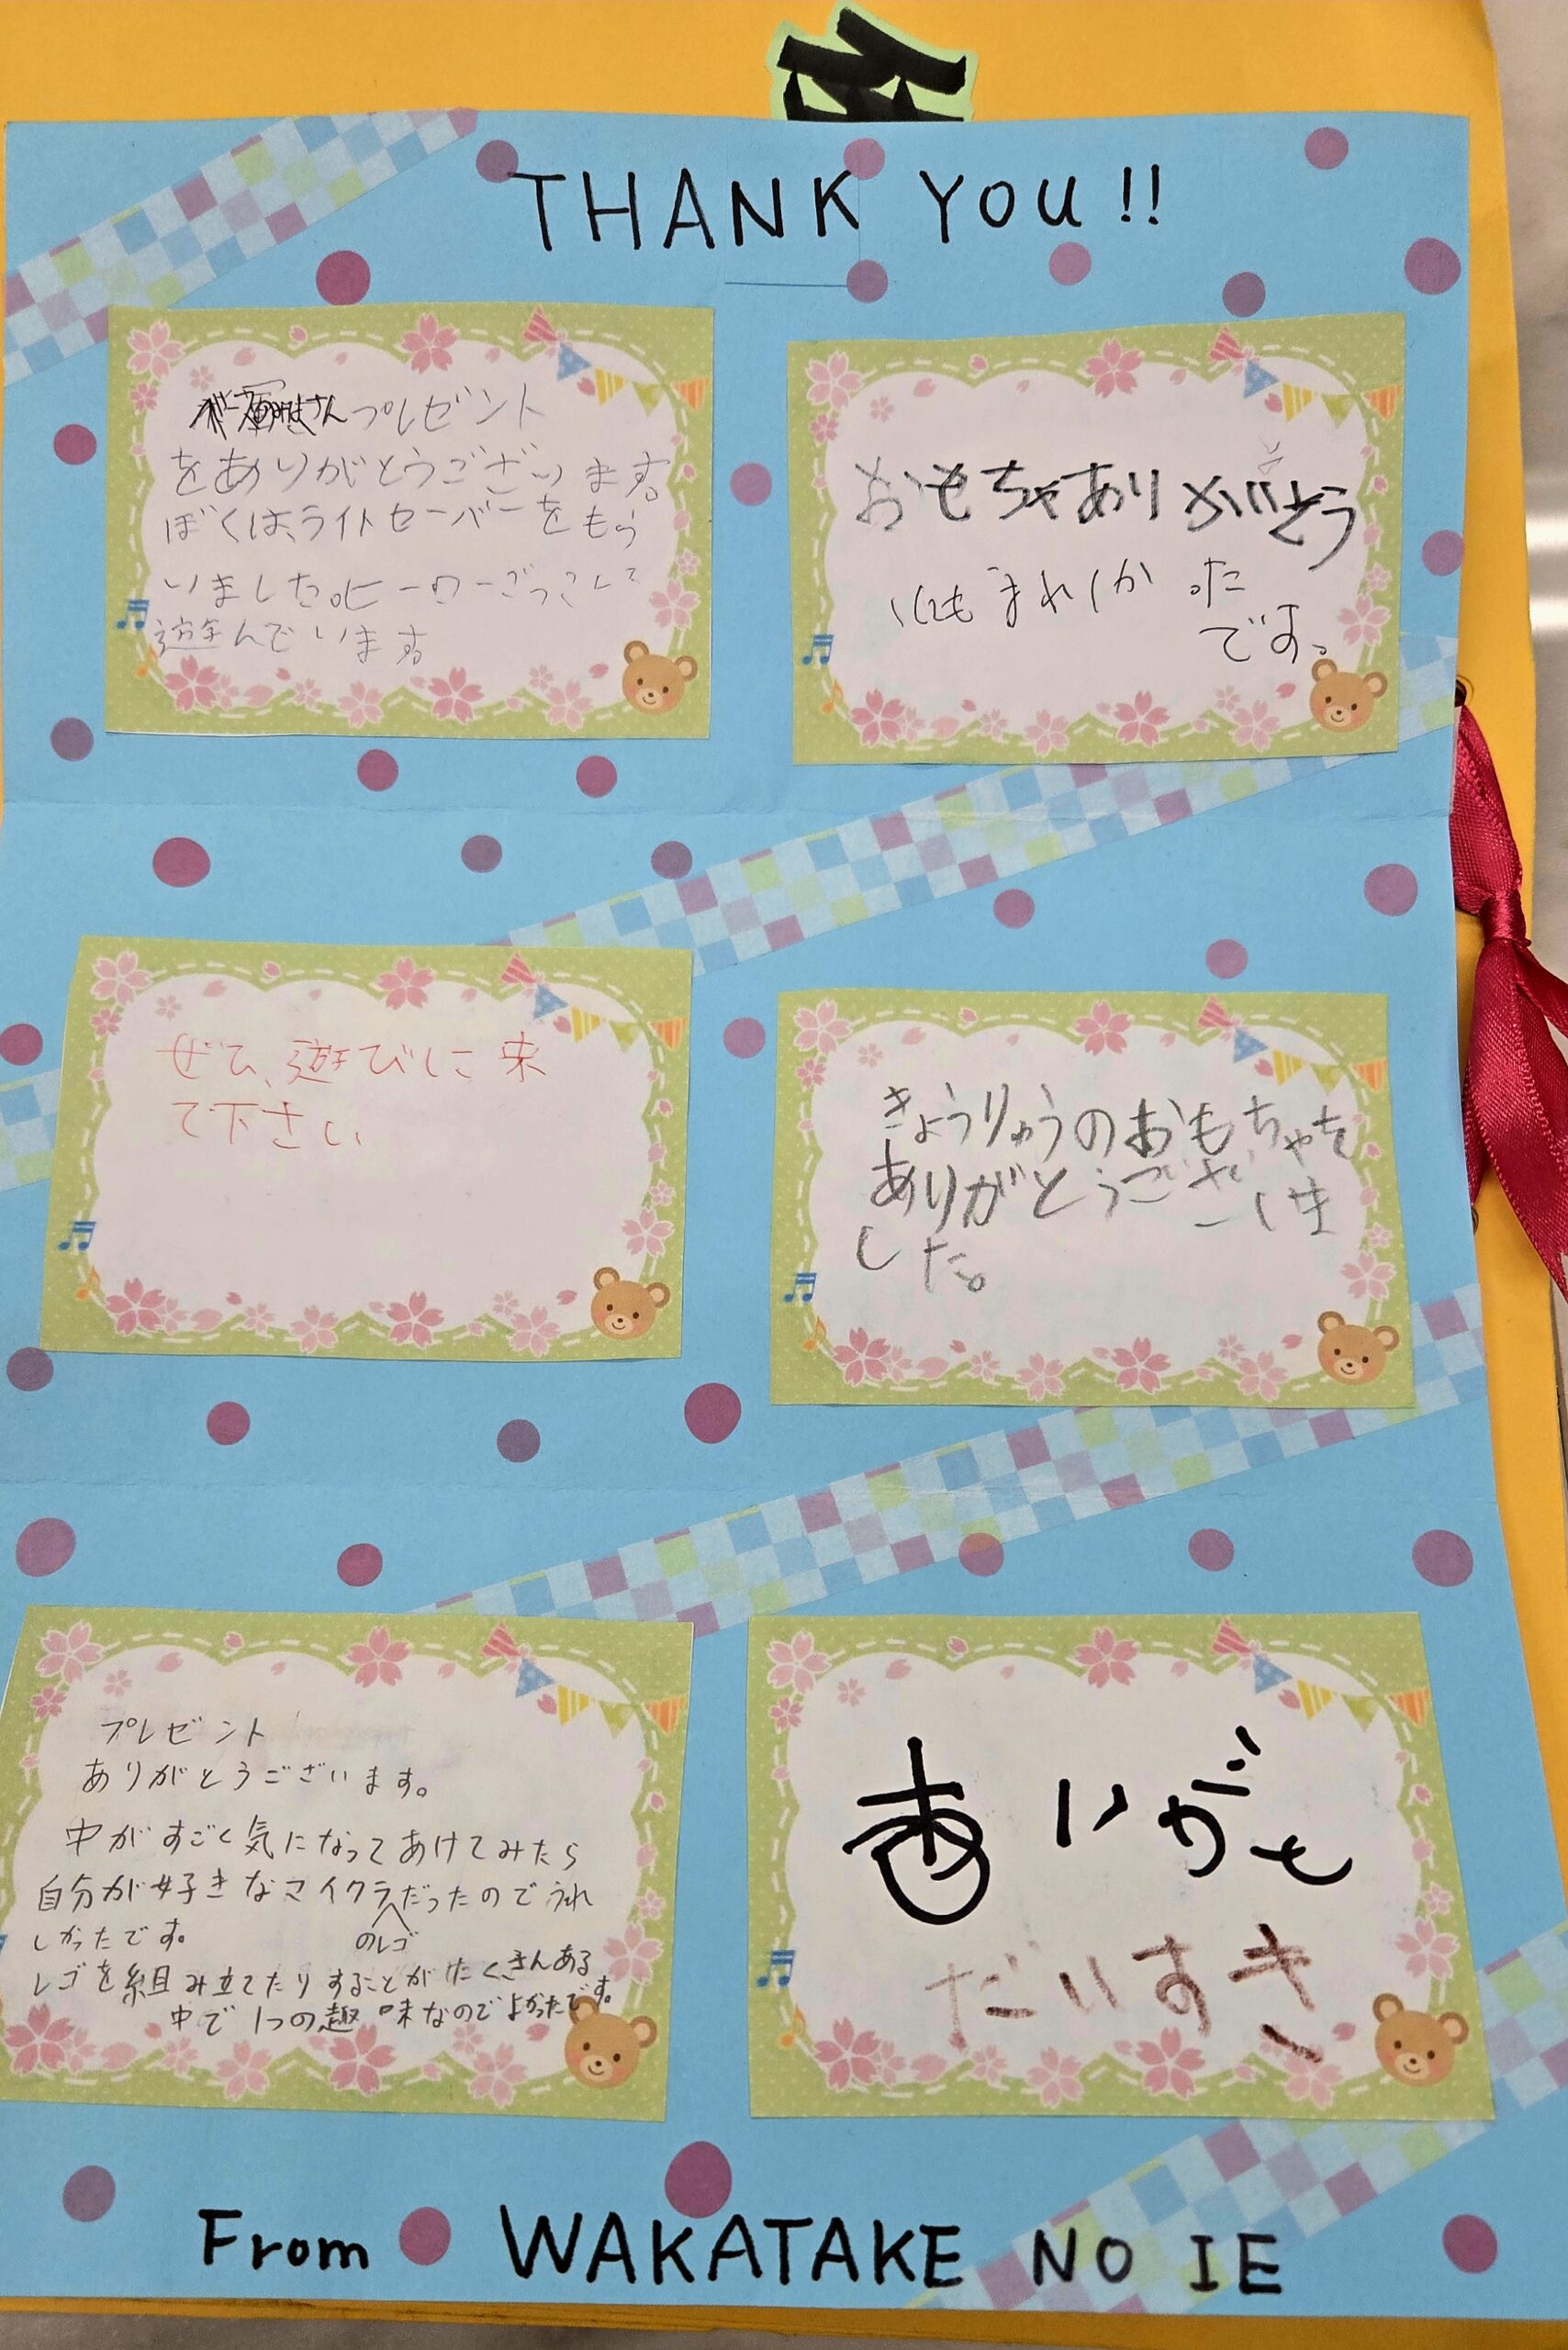 THANK YOU!!
プレゼント
をありがとうございます。
ぼくは、ライトセーバーをもら
いました。ヒーローごっこして
遊んでいます
おもちゃありがとう
です。
ぜひ、遊びに来
て下さい
きょうりゅうのおもちゃを
ありがとうございま
した。
プレゼント
ありがとうございます。
中がすごく気になってあけてみたら
自分が好きなマイクラだったのでうれ
のレゴ
しかったです。
レゴを組み立てたりすることがたくさんある
中で1つの趣味なのでよかったです。
ありがと
だいすき
From WAKATAKE NO IE